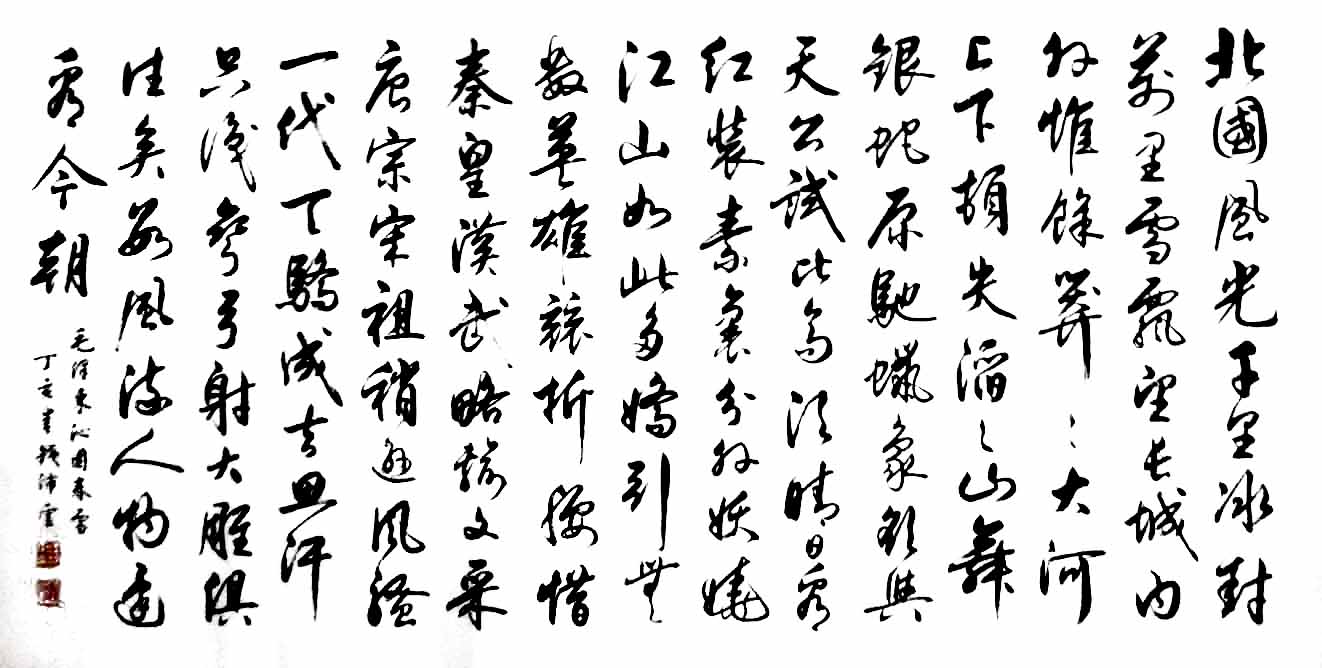 北國風光千里冰封
萬里雪飄望長城內
外惟餘莽〻大河
上下頓失滔〻山舞
銀蛇原馳蠟象欲與
天公試比高須晴日看
紅裝素裹分外妖嬈
江山如此多嬌引無
數英雄競折腰惜
秦皇漢武略輸文采
唐宗宋祖稍遜風騷
一代天驕成吉思汗
只識彎弓射大雕俱
往矣數風流人物還
看今朝
毛澤東沁園春雪
丁亥春錢沛雲